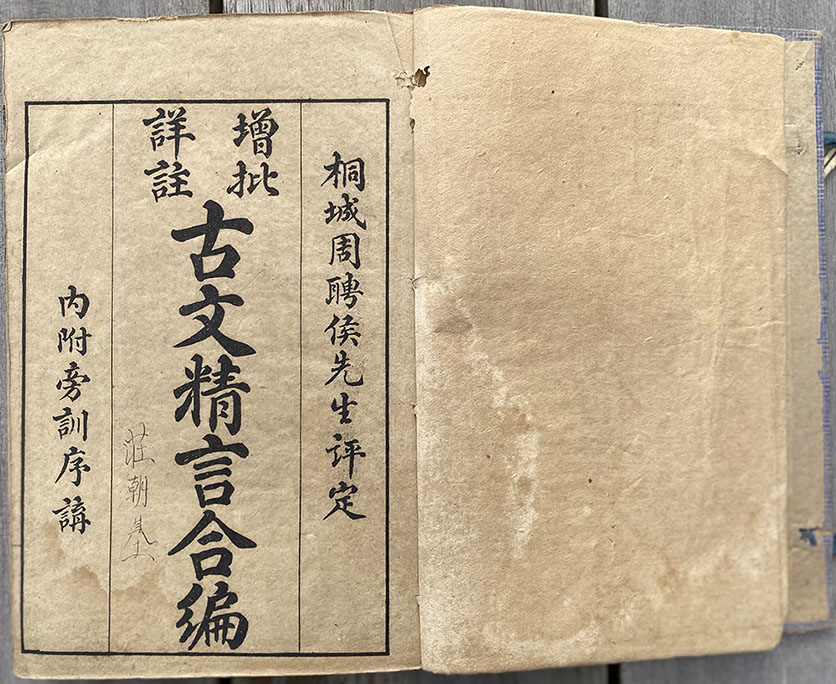 桐城周聘侯先生評定
增批
詳註
古文精言合編
內附旁訓序講
莊朝